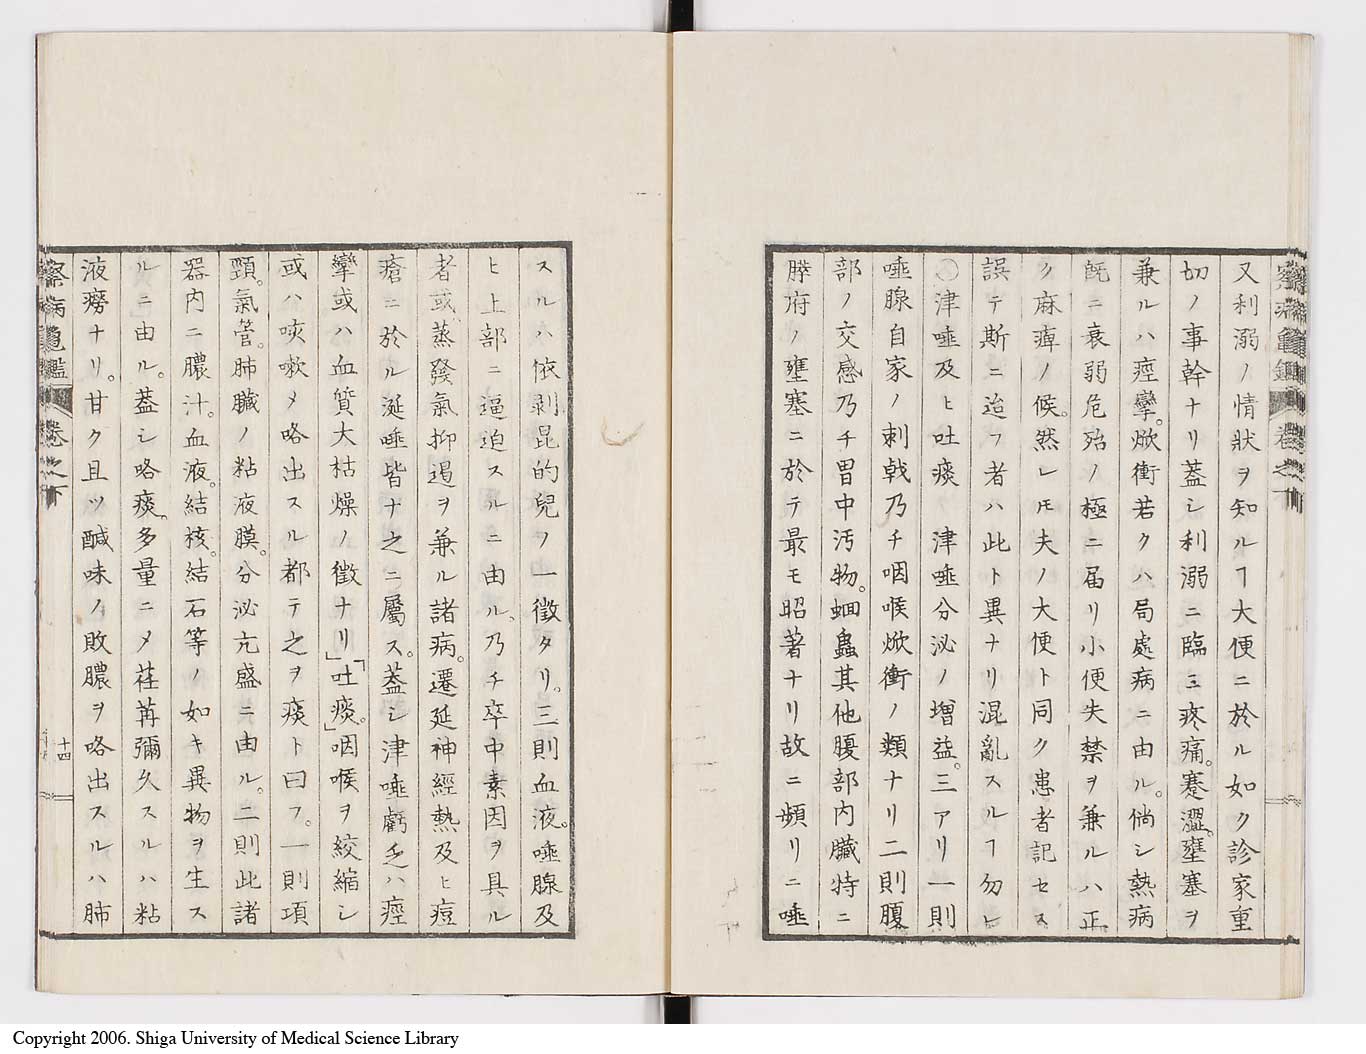 又利溺ノ情狀ヲ知ルヿ大便ニ於ル如ク診家重
切ノ事幹ナリ蓋シ利溺ニ臨ミ疼痛。蹇澀。壅塞ヲ
兼ルハ痙攣。焮衝若クハ局處病ニ由ル。倘シ熱病
既ニ衰弱危殆ノ極ニ届リ小便失禁ヲ兼ルハ正
ク麻痺ノ候。然レモ夫ノ大便ト同ク患者記セス
誤テ斯ニ迨フ者ハ此ト異ナリ混亂スルヿ勿ヒ
○津唾及ヒ吐痰 津唾分泌ノ増益。三アリ一則
唾腺自家ノ刺戟乃チ咽喉焮衝ノ類ナリ二則腹
部ノ交感乃チ胃中汚物。蛔蟲其他腹部内臟特ニ
膵府ノ壅塞ニ於テ最モ昭著ナリ故ニ頻リニ唾
スルハ依剥昆的兒ノ一徴タリ。三則血液。唾腺及
ヒ上部ニ逼迫スルニ由ル、乃チ卒中素因ヲ具ル
者或蒸發氣抑遏ヲ兼ル諸病。遷延神經熱及ヒ痘
瘡ニ於ル涎唾皆ナ之ニ屬ス。蓋シ津唾虧乏ハ痙
攣或ハ血質大枯燥ノ徴ナリ」「吐痰。」咽喉ヲ絞縮シ
或ハ咳嗽メ咯出スル都テ之ヲ痰ト曰フ。一則項
頸。氣管。肺臟ノ粘液膜。分泌亢盛ニ由ル。二則此諸
器内ニ膿汁。血液。結核。結石等ノ如キ異物ヲ生ス
ルニ由ル。蓋シ咯痰、多量ニメ荏苒彌久スルハ粘
液癆ナリ。甘ク且ツ醎味ノ敗膿ヲ咯出スルハ肺
察病龜鑑 卷之下
十四
Copyright 2006. Shiga University of Medical Science Library